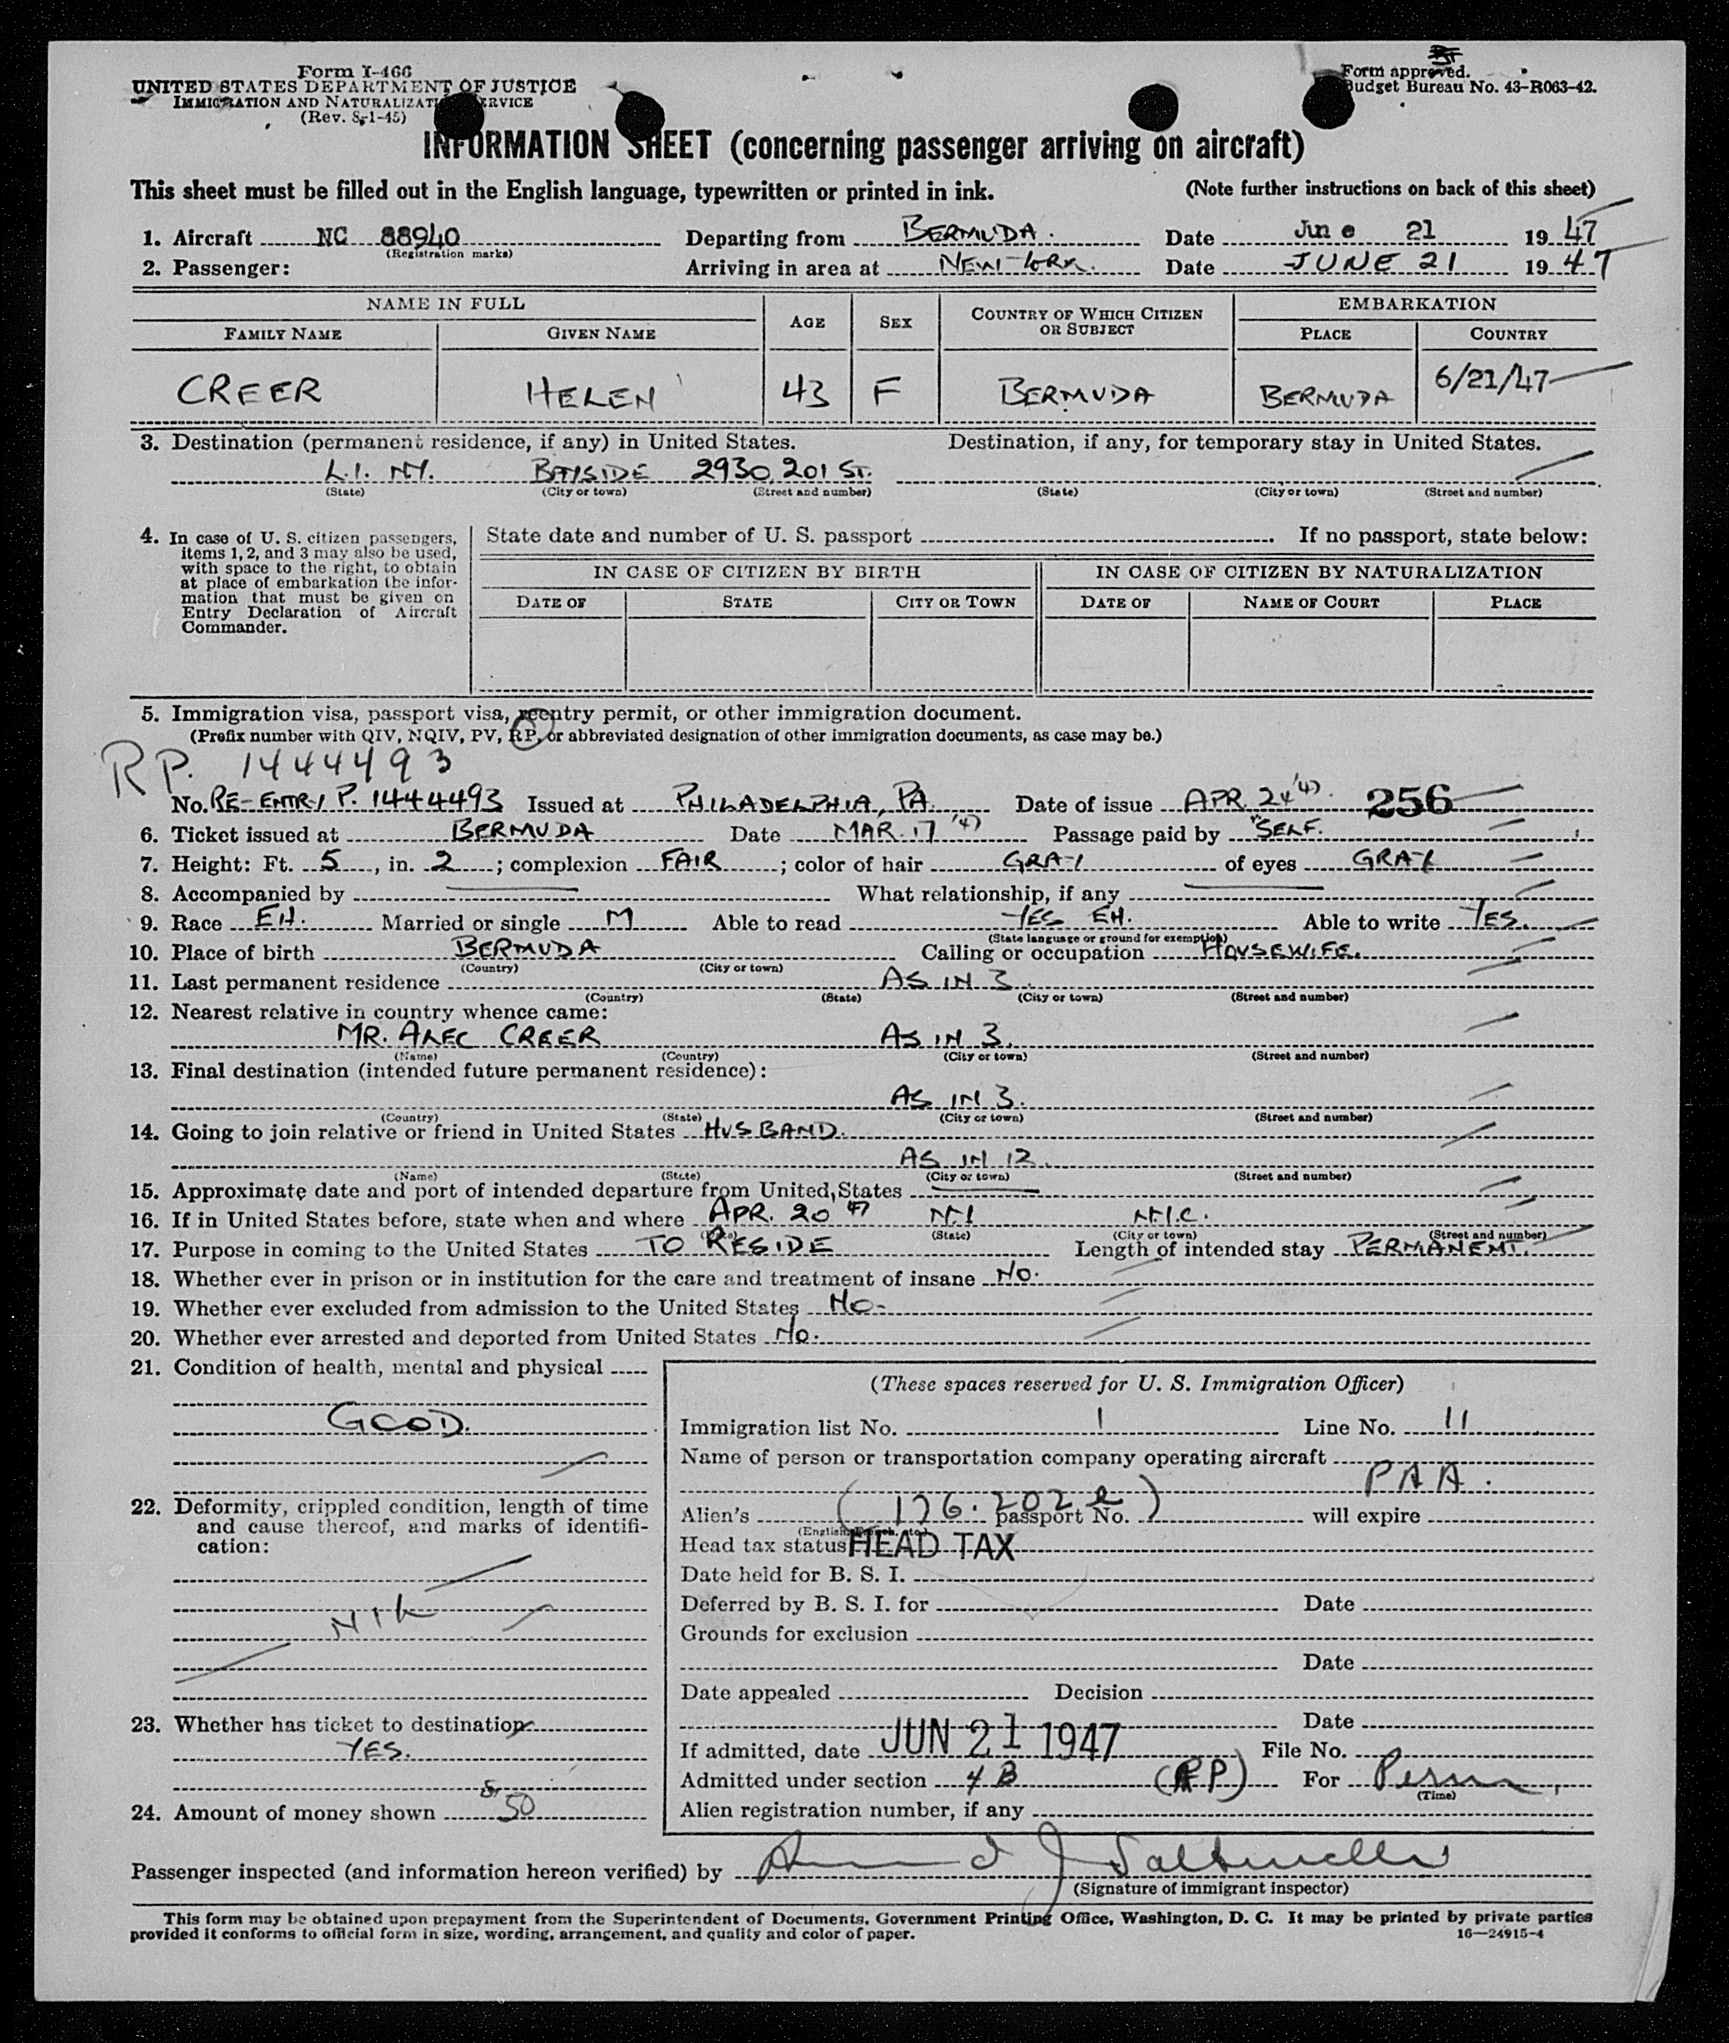 Form I-466
UNITED STATES DEPARTMENT OF JUSTICE
IMMIGRATION AND NATURALIZATION SERVICE
(Rev. 8-1-45)
Form approved.
Budget Bureau No. 43-R063-42.
INFORMATION SHEET (concerning passenger arriving on aircraft)
This sheet must be filled out in the English language, typewritten or printed in ink. (Note further instructions on back of this sheet)
1. Aircraft NC 88940 Departing from BERMUDA. Date June 21 1947
(Registration marks)
2. Passenger: Arriving in area at NEW YORK. Date JUNE 21 1947
NAME IN FULL AGE SEX COUNTRY OF WHICH CITIZEN OR SUBJECT EMBARKATION
FAMILY NAME GIVEN NAME PLACE COUNTRY
CREER HELEN 43 F BERMUDA BERMUDA 6/21/47
3. Destination (permanent residence, if any) in United States. Destination, if any, for temporary stay in United States.
L.I. NY. BAYSIDE 2930, 201 ST.
(State) (City or town) (Street and number) (State) (City or town) (Street and number)
4. In case of U. S. citizen passengers, items 1, 2, and 3 may also be used, with space to the right, to obtain at place of embarkation the information that must be given on Entry Declaration of Aircraft Commander.
State date and number of U. S. passport If no passport, state below:
IN CASE OF CITIZEN BY BIRTH IN CASE OF CITIZEN BY NATURALIZATION
DATE OF STATE CITY OR TOWN DATE OF NAME OF COURT PLACE
5. Immigration visa, passport visa, reentry permit, or other immigration document.
(Prefix number with QIV, NQIV, PV, RP, or abbreviated designation of other immigration documents, as case may be.)
RP. 1444493
No. RE-ENTRY P. 1444493 Issued at PHILADELPHIA, PA. Date of issue APR. 24 '47. 256
6. Ticket issued at BERMUDA Date MAR. 17 '47 Passage paid by SELF.
7. Height: Ft. 5, in. 2; complexion FAIR; color of hair GRAY of eyes GRAY
8. Accompanied by What relationship, if any
9. Race EH. Married or single M Able to read YES EH. Able to write YES.
(State language or ground for exemption)
10. Place of birth BERMUDA Calling or occupation HOUSEWIFE.
(Country) (City or town)
11. Last permanent residence AS IN 3.
(Country) (State) (City or town) (Street and number)
12. Nearest relative in country whence came:
MR. ALEC CREER AS IN 3.
(Name) (Country) (City or town) (Street and number)
13. Final destination (intended future permanent residence):
AS IN 3.
(Country) (State) (City or town) (Street and number)
14. Going to join relative or friend in United States HUSBAND.
AS IN 12.
(Name) (State) (City or town) (Street and number)
15. Approximate date and port of intended departure from United States
16. If in United States before, state when and where APR. 20 47 N.Y N.Y.C.
(State) (City or town) (Street and number)
17. Purpose in coming to the United States TO RESIDE Length of intended stay PERMANENT.
18. Whether ever in prison or in institution for the care and treatment of insane No.
19. Whether ever excluded from admission to the United States No-
20. Whether ever arrested and deported from United States No.
21. Condition of health, mental and physical
GOOD.
22. Deformity, crippled condition, length of time and cause thereof, and marks of identification:
23. Whether has ticket to destination
YES.
24. Amount of money shown $50
(These spaces reserved for U. S. Immigration Officer)
Immigration list No. 1 Line No. 11
Name of person or transportation company operating aircraft
PAA.
Alien's (176.202 e) passport No. will expire
(English, French, etc.)
Head tax status HEAD TAX
Date held for B. S. I.
Deferred by B. S. I. for Date
Grounds for exclusion
Date
Date appealed Decision
Date
If admitted, date JUN 21 1947 File No.
Admitted under section 4 B (RP) For Perm.
(Time)
Alien registration number, if any
Passenger inspected (and information hereon verified) by
(Signature of immigrant inspector)
This form may be obtained upon prepayment from the Superintendent of Documents, Government Printing Office, Washington, D. C. It may be printed by private parties
provided it conforms to official form in size, wording, arrangement, and quality and color of paper. 16—24915-4